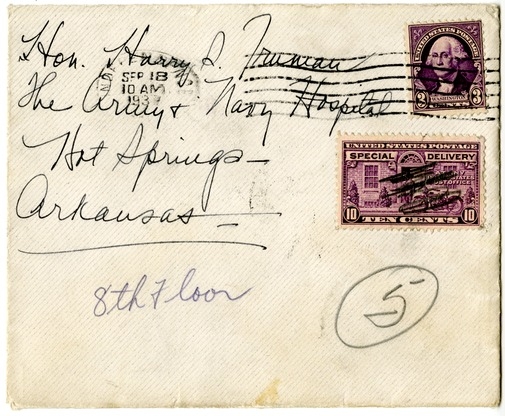 Hon. Harry S. Truman
The Army & Navy Hospital
Hot Springs—
Arkansas—
8th Floor
5
SEP 18
10 AM
1937
UNITED STATES POSTAGE
WASHINGTON
3 CENTS 3
UNITED STATES POSTAGE
SPECIAL DELIVERY
10 TEN CENTS 10